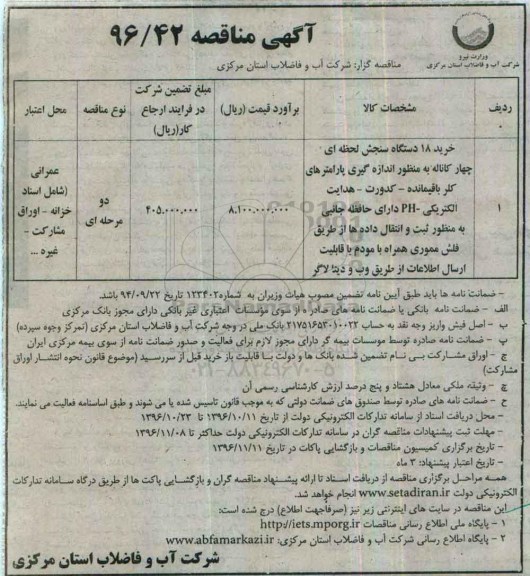 آگهی مناقصه ۹۶/۴۲
وزارت نیرو
شرکت آب و فاضلاب استان مرکزی
مناقصه گزار: شرکت آب و فاضلاب استان مرکزی
ردیف
مشخصات کالا
برآورد قیمت (ریال)
مبلغ تضمین شرکت
در فرایند ارجاع
کار(ریال)
نوع مناقصه
محل اعتبار
۱
خرید ۱۸ دستگاه سنجش لحظه ای
چهار کاناله به منظور اندازه گیری پارامترهای
کلر باقیمانده - کدورت - هدایت
الکتریکی -PH دارای حافظه جانبی
به منظور ثبت و انتقال داده ها از طریق
فلش مموری همراه با مودم با قابلیت
ارسال اطلاعات از طریق وب و دیتا لاگر
۸,۱۰۰,۰۰۰,۰۰۰
۴۰۵,۰۰۰,۰۰۰
دو
مرحله ای
عمرانی
(شامل اسناد
خزانه - اوراق
مشارکت -
غیره ...
- ضمانت نامه ها باید طبق آیین نامه تضمین مصوب هیات وزیران به شماره۱۲۳۴۰۲ تاریخ ۹۴/۰۹/۲۲ باشد.
الف - ضمانت نامه بانکی یا ضمانت نامه های صادره از سوی مؤسسات اعتباری غیر بانکی دارای مجوز بانک مرکزی
ب - اصل فیش واریز وجه نقد به حساب ۲۱۷۵۱۶۵۳۰۱۰۰۲۲ بانک ملی در وجه شرکت آب و فاضلاب استان مرکزی (تمرکز وجوه سپرده)
پ - ضمانت نامه صادره توسط موسسات بیمه گر دارای مجوز لازم برای فعالیت و صدور ضمانت نامه از سوی بیمه مرکزی ایران
ج - اوراق مشارکت بی نام تضمین شده بانک ها و دولت با قابلیت باز خرید قبل از سررسید (موضوع قانون نحوه انتشار اوراق
مشارکت)
چ - وثیقه ملکی معادل هشتاد و پنج درصد ارزش کارشناسی رسمی آن
ح - ضمانت نامه های صادره توسط صندوق های ضمانت دولتی که به موجب قانون تاسیس شده یا می شوند و طبق اساسنامه فعالیت می نمایند.
- محل دریافت اسناد از سامانه تدارکات الکترونیکی دولت از تاریخ ۱۳۹۶/۱۰/۱۱ تا ۱۳۹۶/۱۰/۲۳
- مهلت ثبت پیشنهادات مناقصه گران در سامانه تدارکات الکترونیکی دولت حداکثر تا ۱۳۹۶/۱۱/۰۸
- تاریخ برگزاری کمیسیون مناقصات و بازگشایی پاکات در تاریخ ۱۳۹۶/۱۱/۱۱
- تاریخ اعتبار پیشنهاد: ۳ ماه
همه مراحل برگزاری مناقصه از دریافت اسناد تا ارائه پیشنهاد مناقصه گران و بازگشایی پاکت ها از طریق درگاه سامانه تدارکات
الکترونیکی دولت www.setadiran.ir انجام خواهد شد.
این مناقصه در سایت های اینترنتی زیر نیز (صرفاًجهت اطلاع) درج شده است:
۱ - پایگاه ملی اطلاع رسانی مناقصات http://iets.mporg.ir
۲ - پایگاه اطلاع رسانی شرکت آب و فاضلاب استان مرکزی: www.abfamarkazi.ir
شرکت آب و فاضلاب استان مرکزی